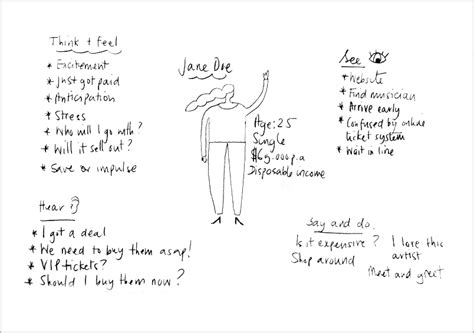 Think + feel
* Excitement
* Just got paid
* Anticipation
* Stress
* Who will I go with?
* Will it sell out?
* Save or impulse
Jane Doe
Age: 25
Single
$65.000 p.a
Disposable income
See
* Website
* Find musician
* Arrive early
* Confused by online
ticket system
* Wait in line
Hear
* I got a deal
* We need to buy them asap!
* VIP tickets?
* Should I buy them now?
Say and do.
Is it expensive?
Shop around
I love this
artist
Meet and greet